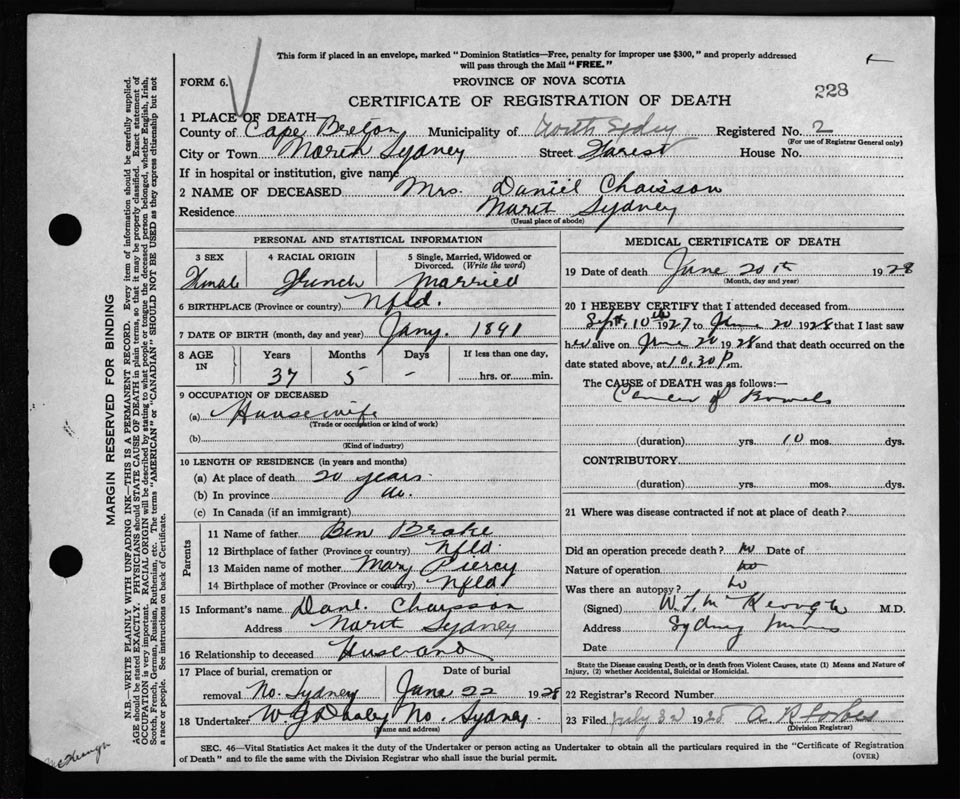 This form if placed in an envelope, marked "Dominion Statistics—Free, penalty for improper use $300," and properly addressed
will pass through the Mail "FREE."
FORM 6.
PROVINCE OF NOVA SCOTIA
228
CERTIFICATE OF REGISTRATION OF DEATH
1 PLACE OF DEATH—
County of Cape Breton Municipality of North Sydney Registered No. 2
(For use of Registrar General only)
City or Town North Sydney Street Forest House No.
If in hospital or institution, give name
2 NAME OF DECEASED Mrs. Daniel Chaisson
Residence North Sydney
(Usual place of abode)
PERSONAL AND STATISTICAL INFORMATION
3 SEX 4 RACIAL ORIGIN 5 Single, Married, Widowed or Divorced. (Write the word)
Female French Married
6 BIRTHPLACE (Province or country) Nfld.
7 DATE OF BIRTH (month, day and year) Jany. 1891
8 AGE IN Years Months Days If less than one day,
37 5 - hrs. or min.
9 OCCUPATION OF DECEASED
(a) Housewife
(Trade or occupation or kind of work)
(b)
(Kind of industry)
10 LENGTH OF RESIDENCE (in years and months)
(a) At place of death 20 years
(b) In province do.
(c) In Canada (if an immigrant)
Parents
11 Name of father Ben Brake
12 Birthplace of father (Province or country) Nfld.
13 Maiden name of mother Mary Piercy
14 Birthplace of mother (Province or country) Nfld
15 Informant's name Danl. Chaisson
Address North Sydney
16 Relationship to deceased Husband
17 Place of burial, cremation or Date of burial
removal No. Sydney June 22 1928
18 Undertaker W. J. No. Sydney.
(Name and address)
MEDICAL CERTIFICATE OF DEATH
19 Date of death June 20th 1928
(Month, day and year)
20 I HEREBY CERTIFY that I attended deceased from
Sept. 10th 1927 to June 20 1928 that I last saw
her alive on June 20 1928 and that death occurred on the
date stated above, at 10.30 P. m.
The CAUSE of DEATH was as follows:—
Cancer of Bowels
(duration) yrs. 10 mos. dys.
CONTRIBUTORY
(duration) yrs. mos. dys.
21 Where was disease contracted if not at place of death?
Did an operation precede death? no Date of
Nature of operation no
Was there an autopsy? no
(Signed) W. J. McKeough M.D.
Address Sydney Mines
Date
State the Disease causing Death, or in death from Violent Causes, state (1) Means and Nature of
Injury, (2) whether Accidental, Suicidal or Homicidal.
22 Registrar's Record Number
23 Filed July 1928 A.
(Division Registrar)
SEC. 46—Vital Statistics Act makes it the duty of the Undertaker or person acting as Undertaker to obtain all the particulars required in the "Certificate of Registration
of Death" and to file the same with the Division Registrar who shall issue the burial permit.
(OVER)
MARGIN RESERVED FOR BINDING
N.B.—WRITE PLAINLY WITH UNFADING INK—THIS IS A PERMANENT RECORD. Every item of information should be carefully supplied.
AGE should be stated EXACTLY. PHYSICIANS should STATE CAUSE OF DEATH in plain terms, so that it may be properly classified. Exact statement of
OCCUPATION is very important. RACIAL ORIGIN will be described by stating to what people or tongue the deceased person belonged, whether English, Irish,
Scotch, French, German, Russian, Ruthenian, etc. The terms "AMERICAN" or "CANADIAN" SHOULD NOT BE USED as they express citizenship but not
a race or people. See instructions on back of Certificate.
McKeough